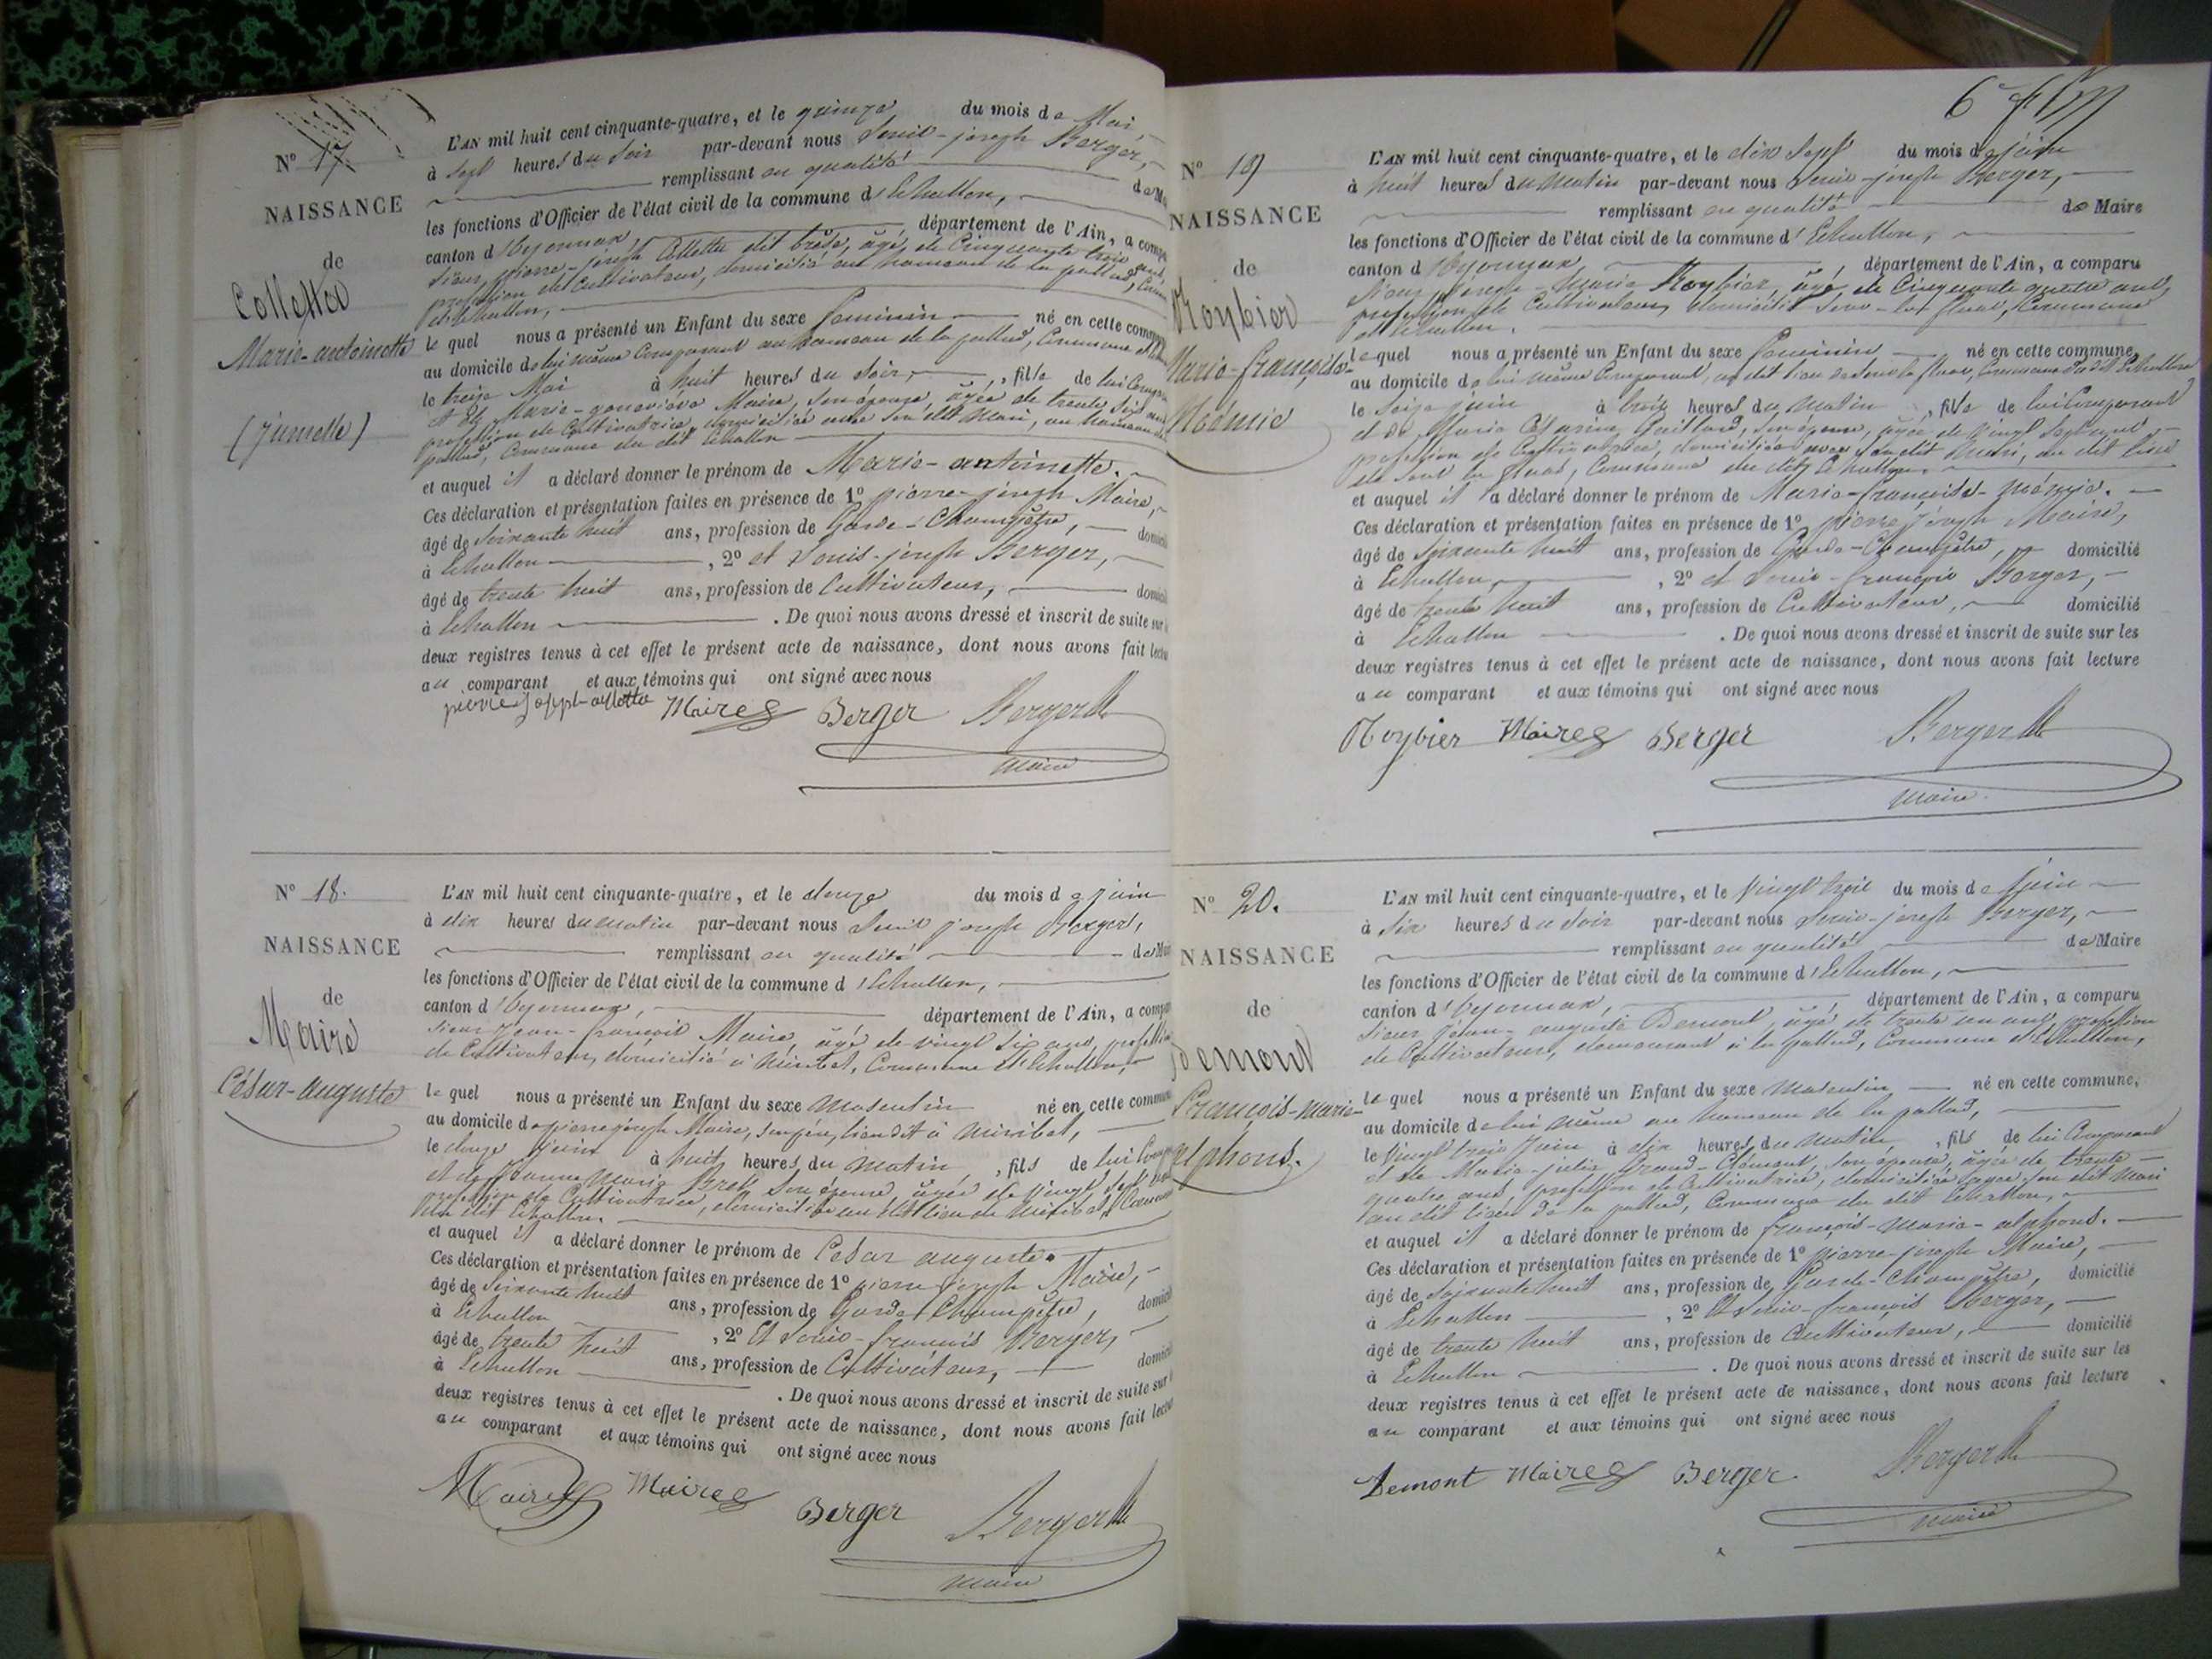 N° 17.
NAISSANCE
de
Collette
Marie-antoinette
(jumelle)
L'AN mil huit cent cinquante-quatre, et le quinze du mois de Mai,
à Sept heures du Soir par-devant nous Louis-joseph Berger,
remplissant en qualité de
les fonctions d'Officier de l'état civil de la commune d'Echallon,
canton d'Oyonnax, département de l'Ain, a comp
Sieur pierre-joseph Collette dit brede, âgé de Cinquante trois ans,
profession de Cultivateur, domicilié au hameau de la pallud, Com
d'Echallon,
le quel nous a présenté un Enfant du sexe feminin né en cette commune
au domicile de lui même Comparant au hameau de la pallud, Commune
le treize Mai à huit heures du Soir, fille de lui Comp
et de Marie-geneviève Maire, Son épouse, âgée de trente Six ans
profession de Cultivatrice, domiciliée avec Son dit Mari, au hameau de
pallud, Commune du dit Echallon
et auquel il a déclaré donner le prénom de Marie-antoinette.
Ces déclaration et présentation faites en présence de 1° pierre-joseph Maire,
âgé de Soixante huit ans, profession de Garde-Champêtre, domicil
à Echallon, 2° et Louis-joseph Berger,
âgé de trente huit ans, profession de Cultivateur, domicil
à Echallon. De quoi nous avons dressé et inscrit de suite sur
deux registres tenus à cet effet le présent acte de naissance, dont nous avons fait lectu
au comparant et aux témoins qui ont signé avec nous
pierre joseph collette Maire Berger Berger
Maire
N° 18.
NAISSANCE
de
Maire
César-auguste
L'AN mil huit cent cinquante-quatre, et le douze du mois de juin
à dix heures du matin par-devant nous Louis joseph Berger,
remplissant en qualité de Mai
les fonctions d'Officier de l'état civil de la commune d'Echallon,
canton d'Oyonnax, département de l'Ain, a comp
Sieur Jean-françois Maire, âgé de vingt Six ans, profession
de Cultivateur, domicilié à Miribel, Commune d'Echallon,
le quel nous a présenté un Enfant du sexe Masculin né en cette commun
au domicile de pierre joseph Maire, Son père, lieu dit à Miribel,
le douze juin à huit heures du matin, fils de lui Comp
et de jeanne Marie Bret Son épouse âgée de Vingt Sept ans
profession de Cultivatrice, domiciliée au dit lieu de Miribel, Commune
du dit Echallon.
et auquel il a déclaré donner le prénom de César auguste.
Ces déclaration et présentation faites en présence de 1° pierre joseph Maire,
âgé de Soixante huit ans, profession de Garde-Champêtre, domicil
à Echallon, 2° Et Louis-françois Berger,
âgé de trente huit ans, profession de Cultivateur, domicil
à Echallon. De quoi nous avons dressé et inscrit de suite sur
deux registres tenus à cet effet le présent acte de naissance, dont nous avons fait lectu
au comparant et aux témoins qui ont signé avec nous
Maire Maire Berger Berger
Maire
6
N° 19
NAISSANCE
de
Roybier
Marie-françoise-
Noémie
L'AN mil huit cent cinquante-quatre, et le dix Sept du mois de juin
à huit heures du Matin par-devant nous Louis-joseph Berger,
remplissant en qualité de Maire
les fonctions d'Officier de l'état civil de la commune d'Echallon,
canton d'Oyonnax, département de l'Ain, a comparu
Sieur joseph-Marie Roybier, âgé de Cinquante quatre ans,
profession de Cultivateur, domicilié Sous-la fluaz, Commune
d'Echallon.
le quel nous a présenté un Enfant du sexe feminin né en cette commune,
au domicile de lui même Comparant, au dit lieu de Sous la fluaz, Commune du dit Echallon
le Seize juin à trois heures du Matin, fille de lui Comparant
et de Marie Césarine Gaillard, Son épouse, âgée de Vingt Sept ans,
profession de Cultivatrice, domiciliée avec Son dit Mari, au dit lieu
de Sous la fluaz, Commune du dit Echallon.
et auquel il a déclaré donner le prénom de Marie-françoise-noémie.
Ces déclaration et présentation faites en présence de 1° pierre joseph Maire,
âgé de Soixante huit ans, profession de Garde-Champêtre, domicilié
à Echallon, 2° et Louis-françois Berger,
âgé de trente huit ans, profession de Cultivateur, domicilié
à Echallon. De quoi nous avons dressé et inscrit de suite sur les
deux registres tenus à cet effet le présent acte de naissance, dont nous avons fait lecture
au comparant et aux témoins qui ont signé avec nous
Roybier Maire Berger Berger
Maire
N° 20.
NAISSANCE
de
Demont
François-Marie-
alphons.
L'AN mil huit cent cinquante-quatre, et le Vingt trois du mois de juin
à Six heures du Soir par-devant nous Louis-joseph Berger,
remplissant en qualité de Maire
les fonctions d'Officier de l'état civil de la commune d'Echallon,
canton d'Oyonnax, département de l'Ain, a comparu
Sieur jean-auguste Demont, âgé de trente un ans, profession
de Cultivateur, demeurant à la pallud, Commune d'Echallon,
le quel nous a présenté un Enfant du sexe Masculin né en cette commune,
au domicile de lui même au hameau de la pallud,
le Vingt trois Juin à dix heures du Matin, fils de lui Comparant
et de Marie-julie Grand-Clément, Son épouse, âgée de trente
quatre ans, profession de Cultivatrice, domiciliée avec Son dit Mari
au dit lieu de la pallud, Commune du dit Echallon,
et auquel il a déclaré donner le prénom de françois-Marie-alphons.
Ces déclaration et présentation faites en présence de 1° pierre-joseph Maire,
âgé de Soixante huit ans, profession de Garde-Champêtre, domicilié
à Echallon, 2° Et Louis-françois Berger,
âgé de trente huit ans, profession de Cultivateur, domicilié
à Echallon. De quoi nous avons dressé et inscrit de suite sur les
deux registres tenus à cet effet le présent acte de naissance, dont nous avons fait lecture
au comparant et aux témoins qui ont signé avec nous
Demont Maire Berger Berger
Maire